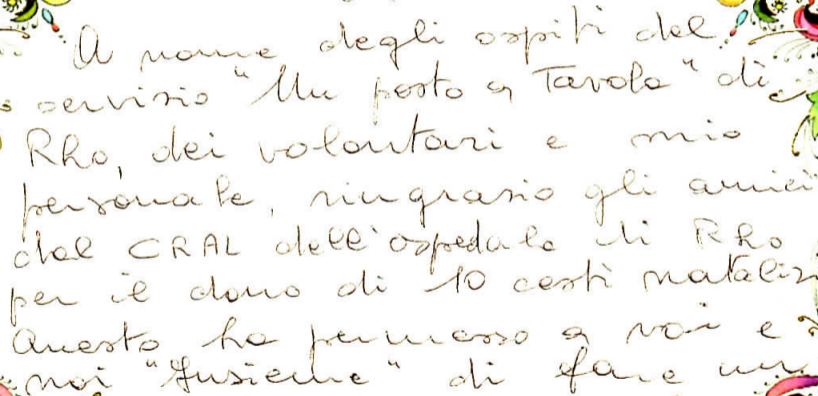 A nome degli ospiti del
servizio "Un posto a Tavola" di
Rho, dei volontari e mio
personale, ringrazio gli amici
del CRAL dell'ospedale di Rho
per il dono di 10 cesti natalizi
Questo ha permesso a voi e
noi "Insieme" di fare un